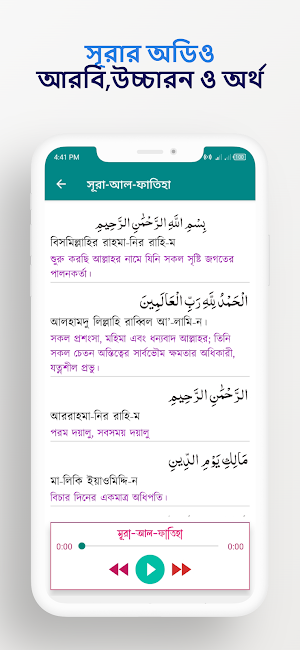 সূরার অডিও
আরবি,উচ্চারন ও অর্থ
4:41 PM
সূরা-আল-ফাতিহা
بِسْمِ اللَّهِ الرَّحْمَٰنِ الرَّحِيمِ
বিসমিল্লাহির রাহমা-নির রাহি-ম
শুরু করছি আল্লাহর নামে যিনি সকল সৃষ্টি জগতের
পালনকর্তা।
الْحَمْدُ لِلَّهِ رَبِّ الْعَالَمِينَ
আলহামদু লিল্লাহি রাব্বিল আ'-লামি-ন।
সকল প্রশংসা, মহিমা এবং ধন্যবাদ আল্লাহর; তিনি
সকল চেতন অস্তিত্বের সার্বভৌম ক্ষমতার অধিকারী,
যত্নশীল প্রভু।
الرَّحْمَٰنِ الرَّحِيمِ
আররাহমা-নির রাহি-ম
পরম দয়ালু, সবসময় দয়ালু
مَالِكِ يَوْمِ الدِّينِ
মা-লিকি ইয়াওমিদ্দি-ন
বিচার দিনের একমাত্র অধিপতি।
সূরা-আল-ফাতিহা
0:00
0:00